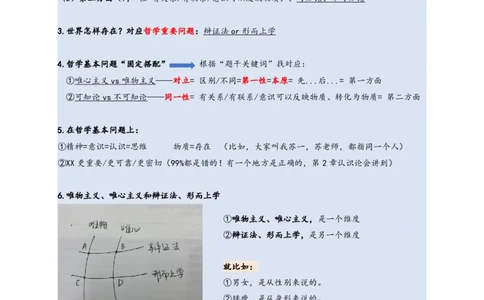 3.世界怎样存在？对应哲学重要问题：辩证法 or 形而上学
4.哲学基本问题“固定搭配” 根据“题干关键词”找对应：
①唯心主义 vs 唯物主义——对立= 区别/不同=第一性=本原= 先...后...= 第一方面
②可知论 vs 不可知论——同一性= 有关系/有联系/意识可以反映物质、转化为物质= 第二方面
5.在哲学基本问题上：
①精神=意识=认识=思维 物质=存在 （比如，大家叫我苏一，苏老师，都指同一个人）
②XX 更重要/更可靠/更密切（99%都是错的！有一个地方是正确的，第 2 章认识论会讲到）
6.唯物主义、唯心主义和辩证法、形而上学
①唯物主义、唯心主义，是一个维度
②辩证法、形而上学，是另一个维度
就比如：
①男女，是从性别来说的。
唯物 唯心
A B 辩证法
C D 形而上学